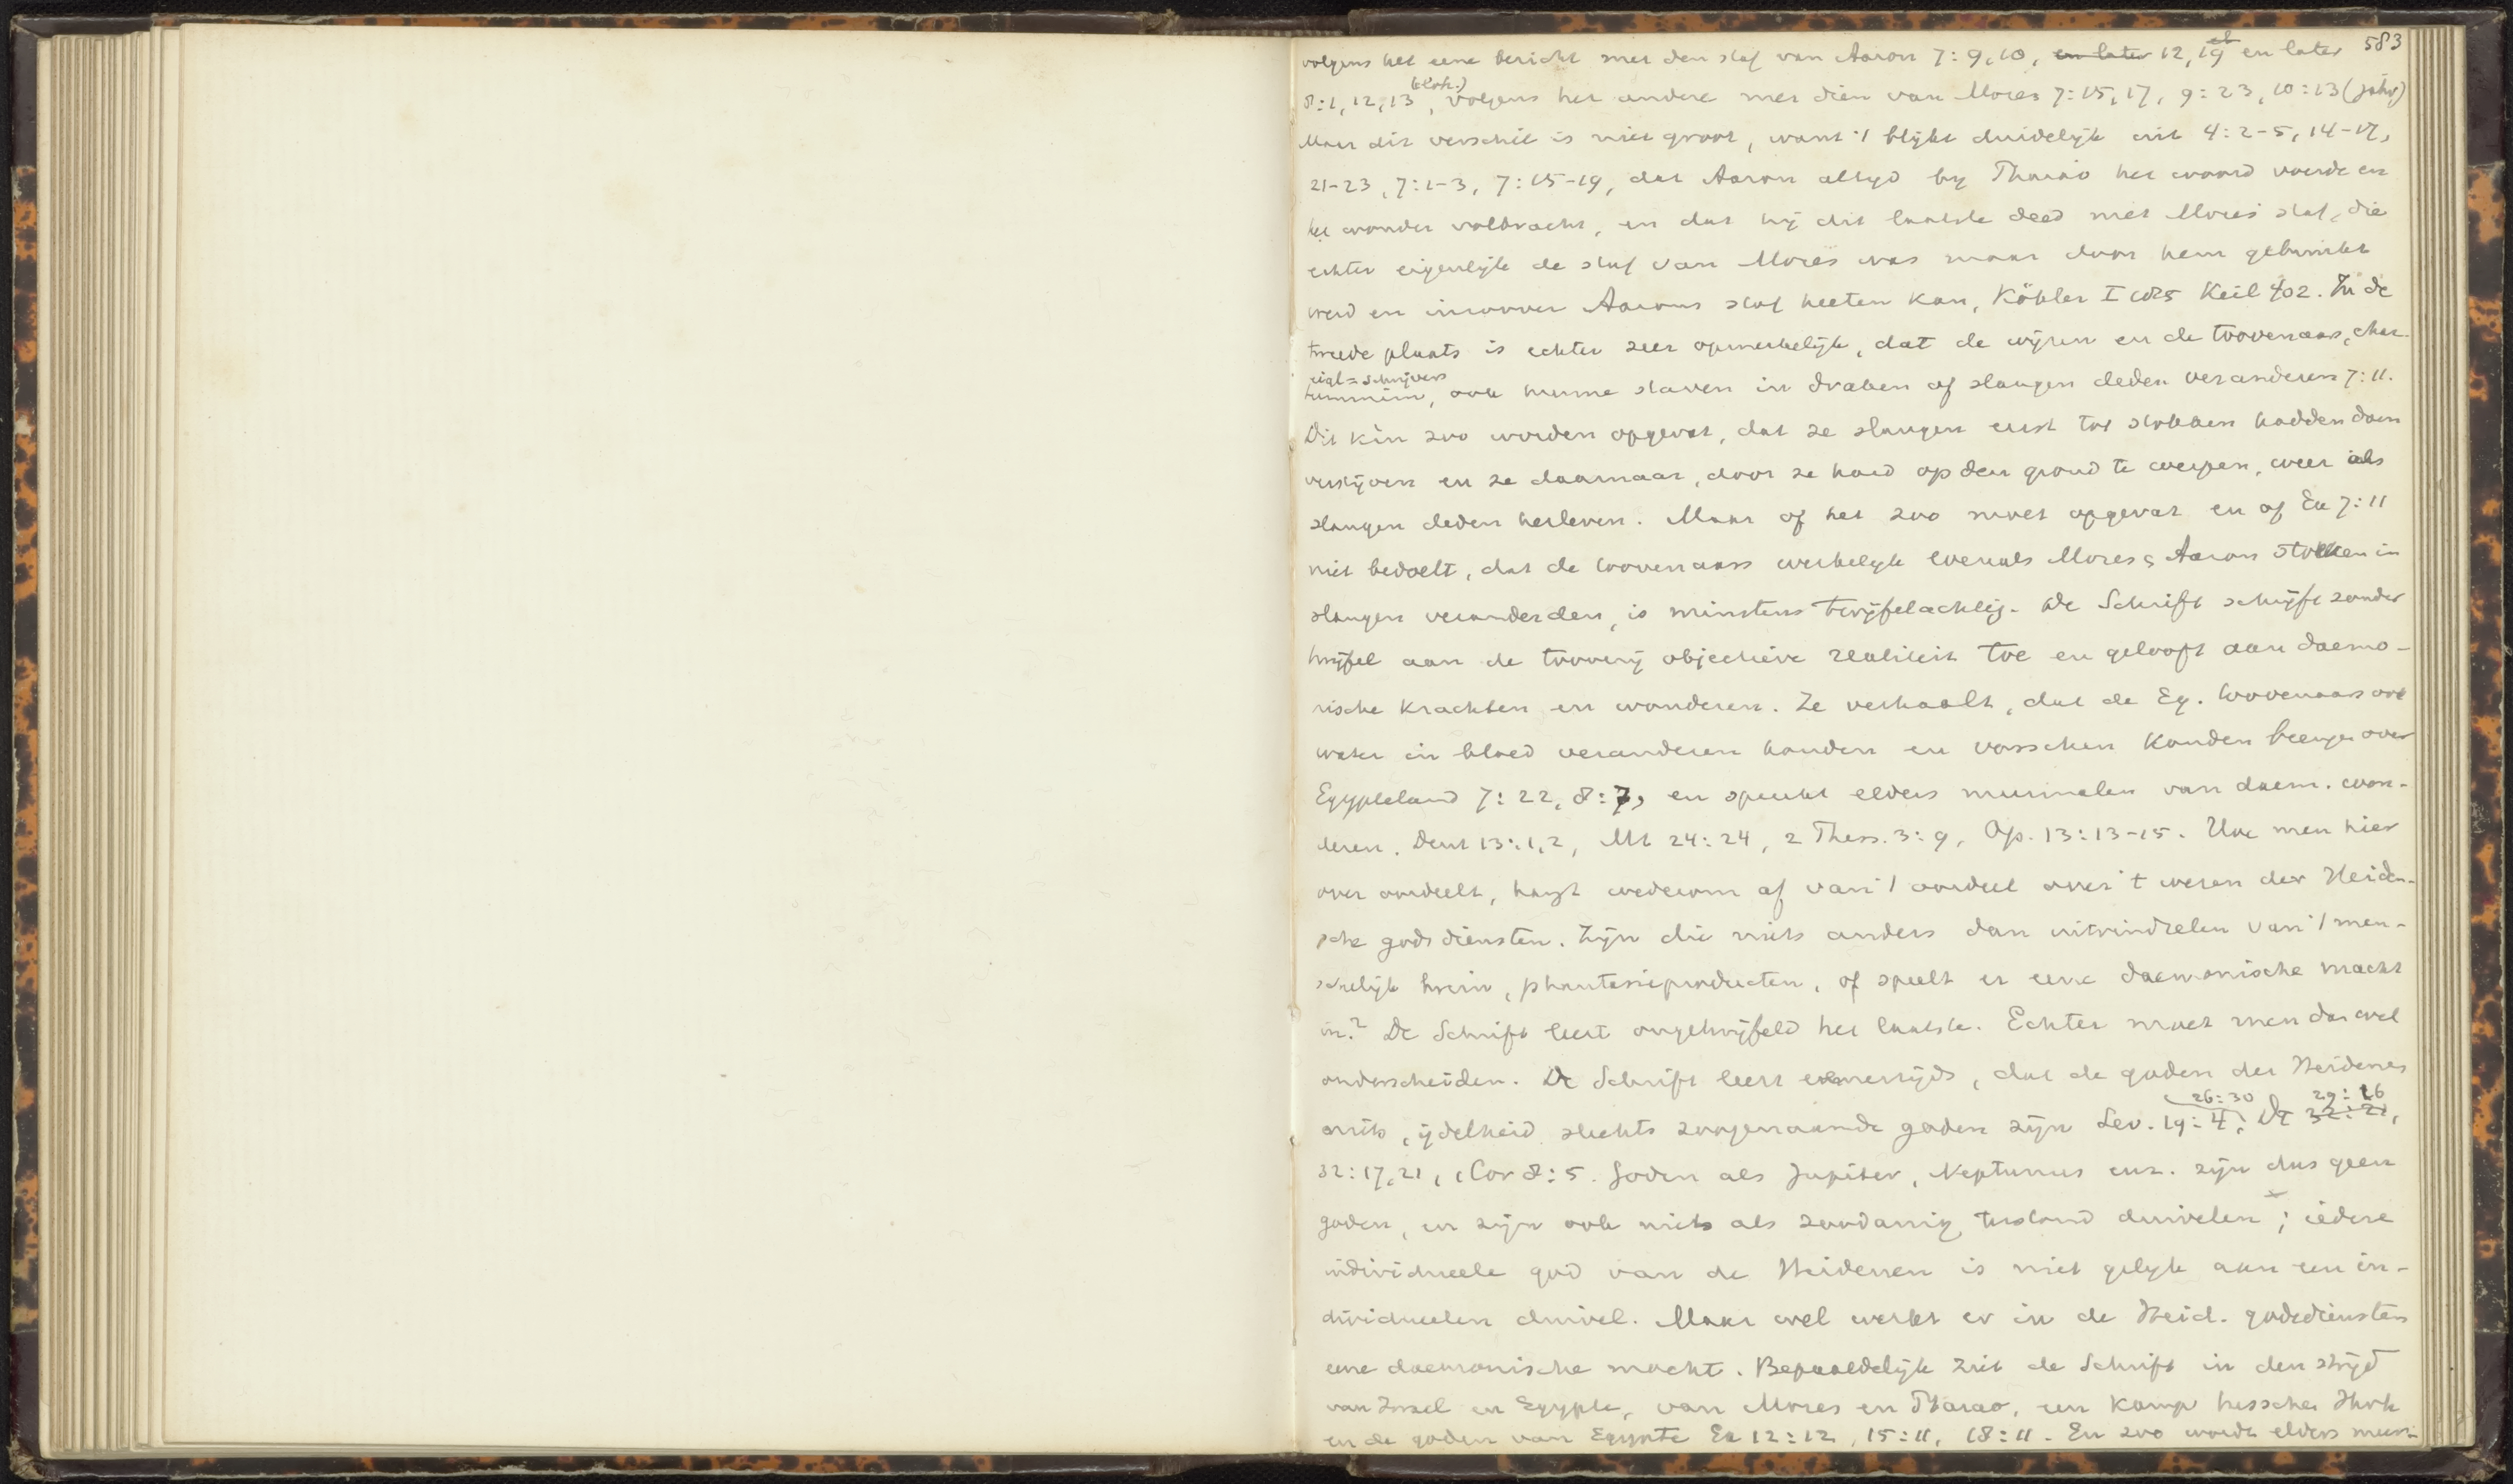 583
volgens het eene bericht met den staf van Aaron 7:9,10, en later 12, 19 el en later
8:1, 12, 13 (eloh.), volgens het andere met dien van Mozes 7:15, 17, 9:23, 10:13 (jahv)
Maar dit verschil is niet groot, want 't blijkt duidelijk uit 4:2-5, 14-17,
21-23, 7:1-3, 7:15-19, dat Aaron altijd bij Pharao het woord voerde en
het wonder volbracht, en dat hij dit laatste deed met Mozes' staf, die
echter eigenlijk de staf van Mozes was maar door hem gebruikt
werd en inzoover Aarons staf heeten kan, Köhler I 185 Keil 402. In de
tweede plaats is echter zeer opmerkelijk, dat de wijzen en de toovenaars, char-
eigl = schrijvers
tummim, ook hunne staven in draken of slangen deden veranderen 7:11.
Dit kàn zoo worden opgevat, dat ze slangen eerst tot stokken hadden doen
verstijven en ze daarnaar, door ze hard op den grond te werpen, weer als
slangen deden herleven. Maar of het zoo moet opgevat en of Ex 7:11
niet bedoelt, dat de toovenaars werkelijk evenals Mozes & Aaron stokken in
slangen veranderden, is minstens twijfelachtig. De Schrift schrijft zonder
twijfel aan de toverij objectieve realiteit toe en gelooft aan daemo-
nische krachten en wonderen. Ze verhaalt, dat de Eg. toovenaars ook
water in bloed veranderen konden en vorschen konden brengen over
Egypteland 7:22, 8:7, en spreekt elders meermalen van daem. won-
deren. Deut 13:1,2, Mt 24:24, 2 Thess. 3:9, Op. 13:13-15. Hoe men hier
over oordeelt, hangt wederom af van 't oordeel over 't wezen der Heiden-
sche godsdiensten. Zijn die niets anders dan uitvindselen van 't men-
schelijk brein, phantasieproducten, of speelt er eene daemonische macht
in? De Schrift leert ongetwijfeld het laatste. Echter moet men dan wel
onderscheiden. De Schrift leert eenerzijds, dat de goden der Heidenen
26:30 29:16
niets, ijdelheid slechts zoogenaamde goden zijn Lev. 19:4; Dt 32:21,
32:17,21, 1 Cor 8:5. Goden als Jupiter, Neptunus enz. zijn dus geen
goden, en zijn ook niets als zoodanig terstond duivelen; iedere
individueele god van de Heidenen is niet gelijk aan een in-
dividueelen duivel. Maar wel werkt er in de Heid. godsdiensten
eene daemonische macht. Bepaaldelijk ziet de Schrift in den strijd
van Israel en Egypte, van Mozes en Pharao, een kamp tusschen Jhvh
en de goden van Egypte Ex 12:12, 15:11, 18:11. En zoo wordt elders meer-